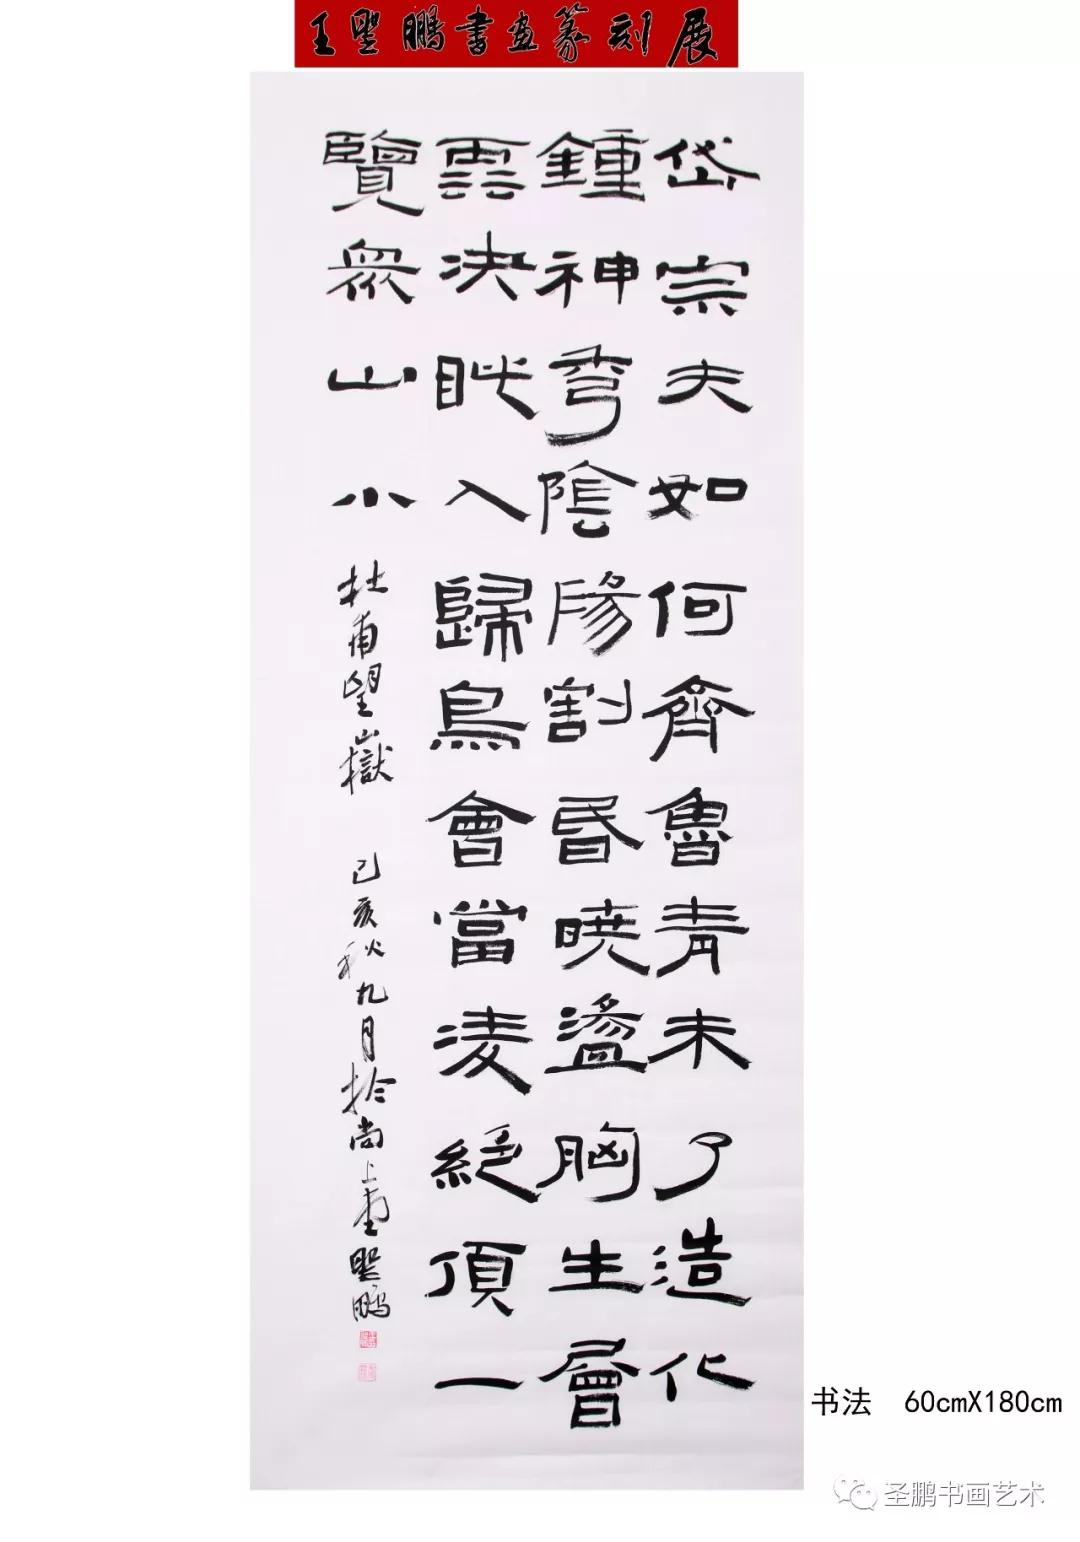 王聖鵬書画篆刻展
岱宗夫如何齊魯青未了造化
鍾神秀陰陽割昏暁盪胸生層
雲決眦入歸鳥會當凌絕頂一
覽眾山小 杜甫望嶽 己亥秋九月於尚上堂聖鵬
书法 60cmX180cm
圣鹏书画艺术